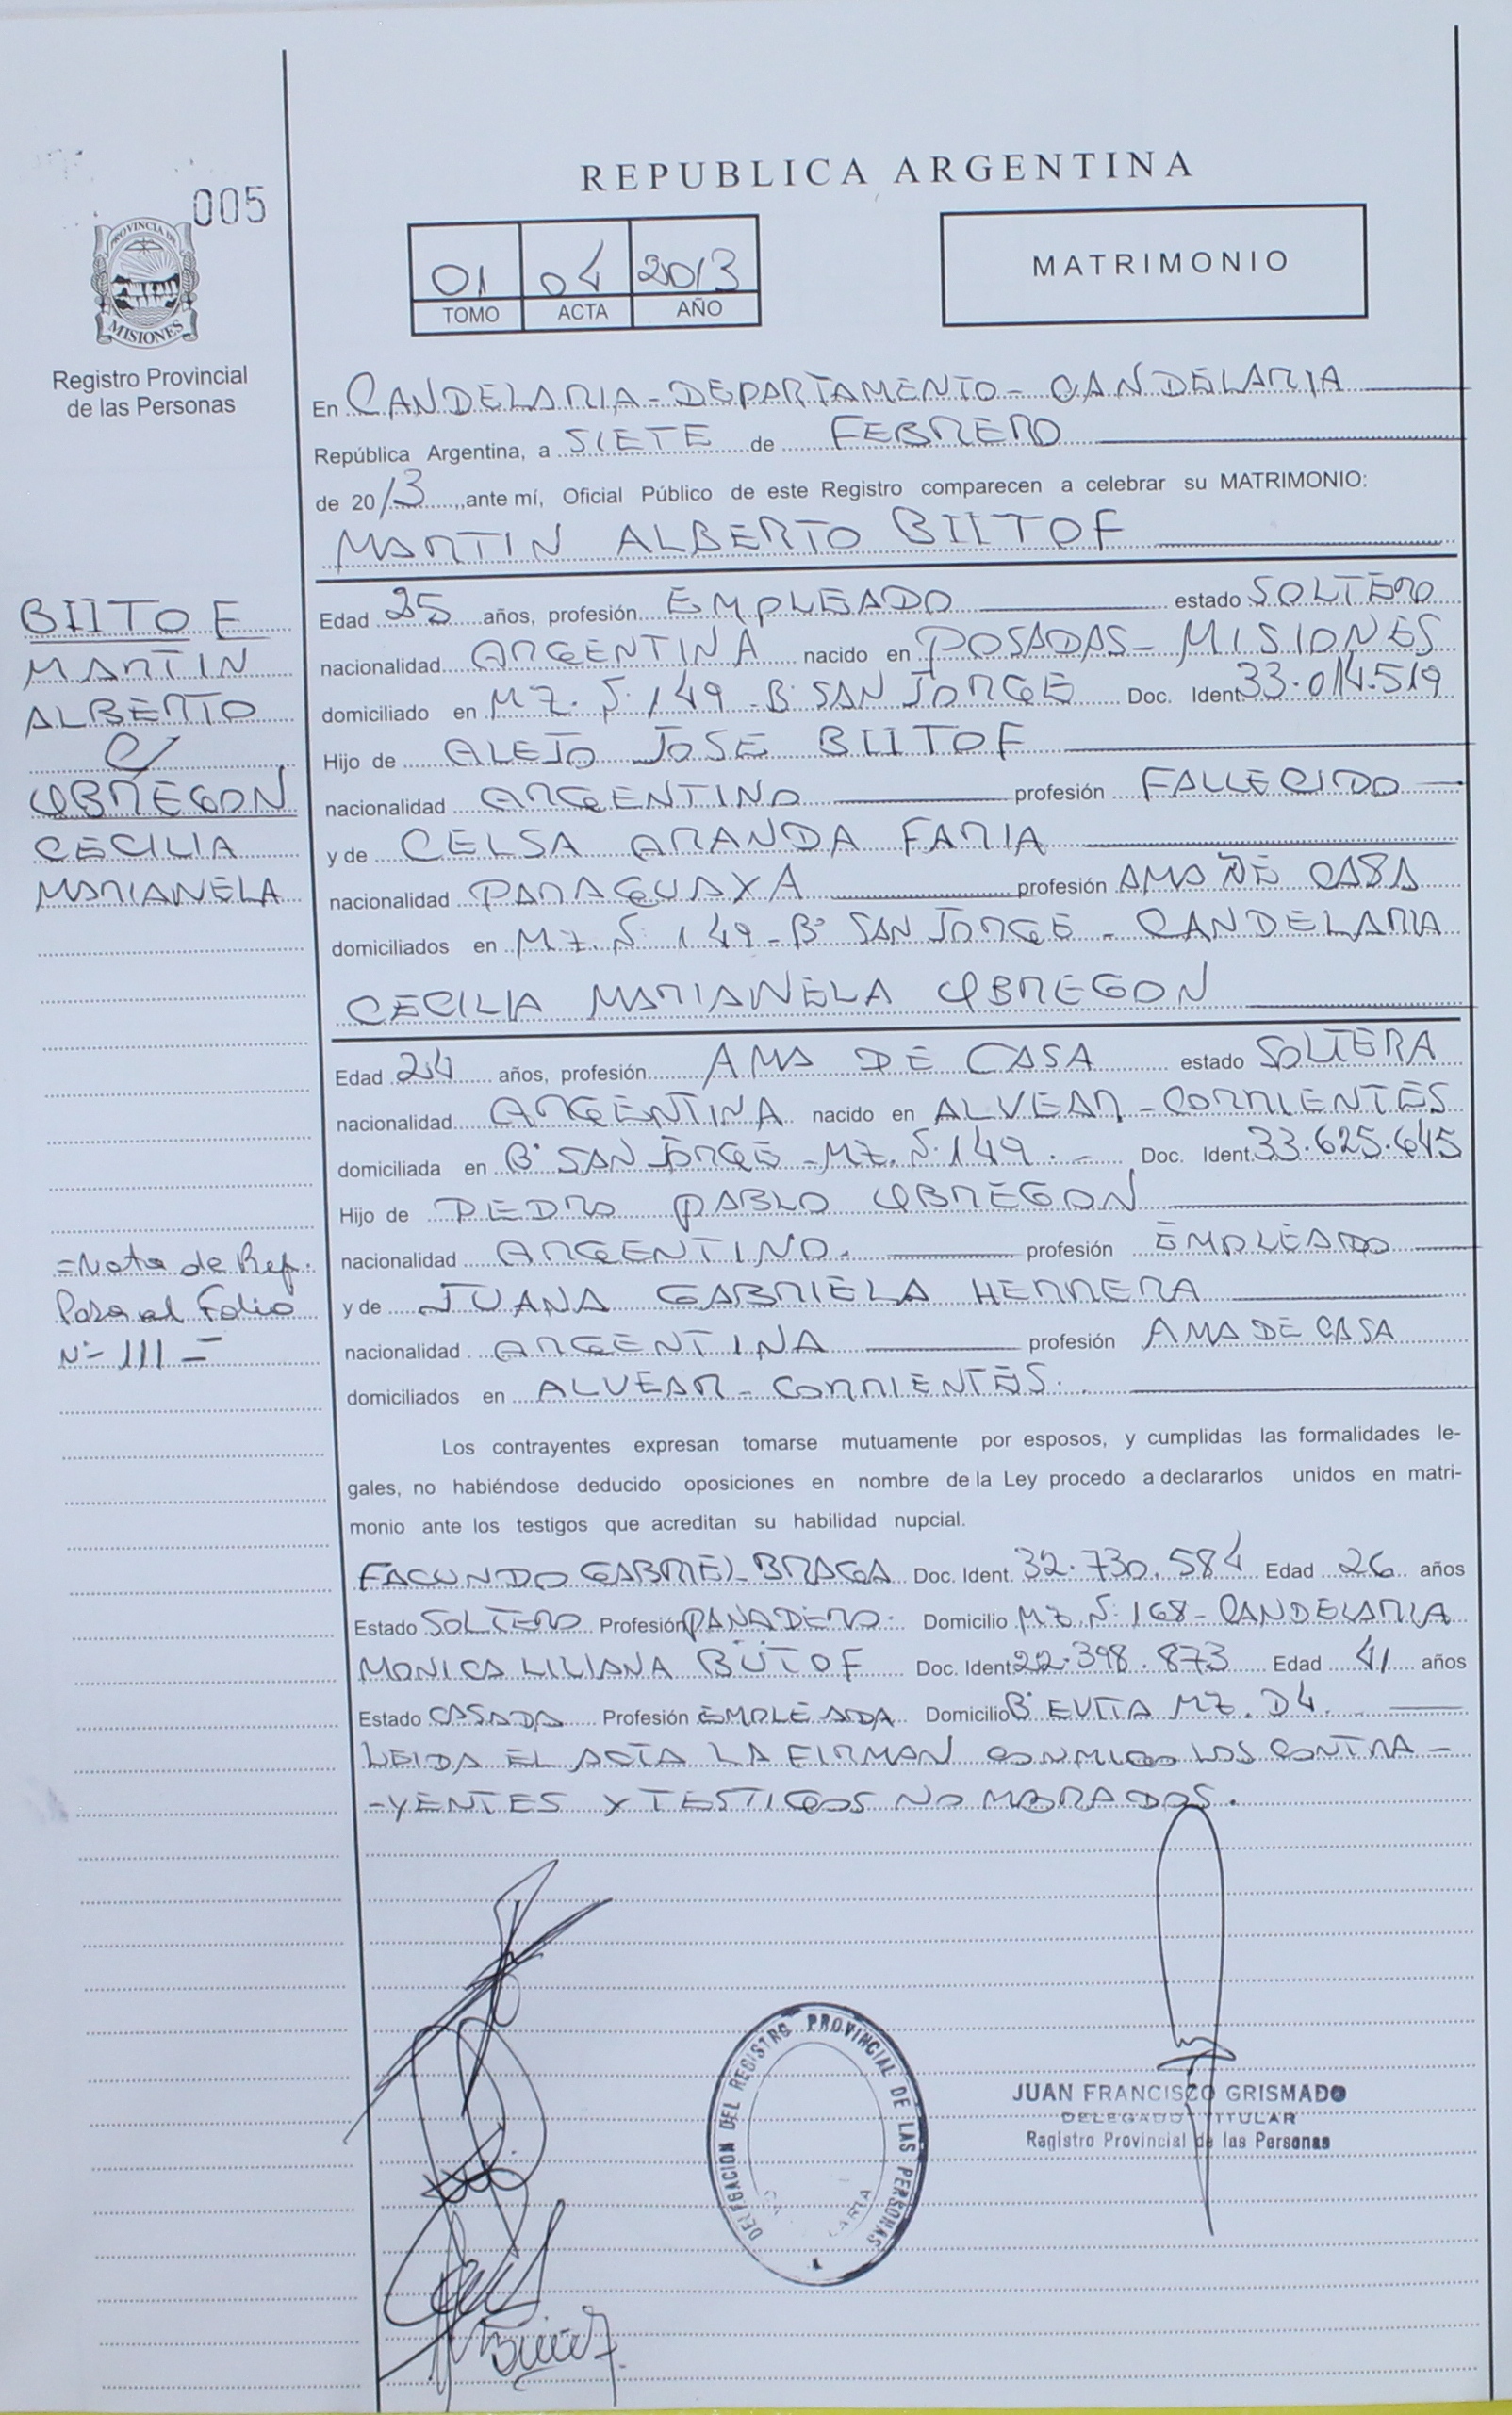 005
PROVINCIA DE
MISIONES
Registro Provincial
de las Personas
REPUBLICA ARGENTINA
01 04 2013
TOMO ACTA AÑO
MATRIMONIO
En CANDELARIA - DEPARTAMENTO - CANDELARIA
República Argentina, a SIETE de FEBRERO
de 2013, ante mí, Oficial Público de este Registro comparecen a celebrar su MATRIMONIO:
MARTIN ALBERTO BIITOF
Edad 25 años, profesión EMPLEADO estado SOLTERO
nacionalidad ARGENTINA nacido en POSADAS - MISIONES
domiciliado en MZ. N° 149 - B° SAN JORGE Doc. Ident. 33.014.519
Hijo de ALEJO JOSE BIITOF
nacionalidad ARGENTINO profesión FALLECIDO
y de CELSA ARANDA FARIA
nacionalidad PARAGUAYA profesión AMA DE CASA
domiciliados en MZ. N° 149 - B° SAN JORGE - CANDELARIA
CECILIA MARIANELA OBREGON
Edad 24 años, profesión AMA DE CASA estado SOLTERA
nacionalidad ARGENTINA nacido en ALVEAR - CORRIENTES
domiciliada en B° SAN JORGE - MZ. N° 149. - Doc. Ident. 33.625.645
Hijo de PEDRO PABLO OBREGON
nacionalidad ARGENTINO. profesión EMPLEADO
y de JUANA GABRIELA HERRERA
nacionalidad ARGENTINA profesión AMA DE CASA
domiciliados en ALVEAR - CORRIENTES.
Los contrayentes expresan tomarse mutuamente por esposos, y cumplidas las formalidades le-
gales, no habiéndose deducido oposiciones en nombre de la Ley procedo a declararlos unidos en matri-
monio ante los testigos que acreditan su habilidad nupcial.
FACUNDO GABRIEL BRAGA Doc. Ident. 32.730.584 Edad 26 años
Estado SOLTERO Profesión PANADERO. Domicilio MZ. N° 168 - CANDELARIA
MONICA LILIANA BÜTOF Doc. Ident. 22.398.873 Edad 41 años
Estado CASADA Profesión EMPLEADA Domicilio B° EVITA MZ. D4.
LEIDA EL ACTA LA FIRMAN CONMIGO LOS CONTRA -
- YENTES Y TESTIGOS NOMBRADOS.
BIITOF
MARTIN
ALBERTO
C/
OBREGON
CECILIA
MARIANELA
= Nota de Ref.
Pasa al Folio
N° 111 =
DELEGACION DEL REGISTRO PROVINCIAL DE LAS PERSONAS
JUAN FRANCISCO GRISMADO
DELEGADO TITULAR
Registro Provincial de las Personas